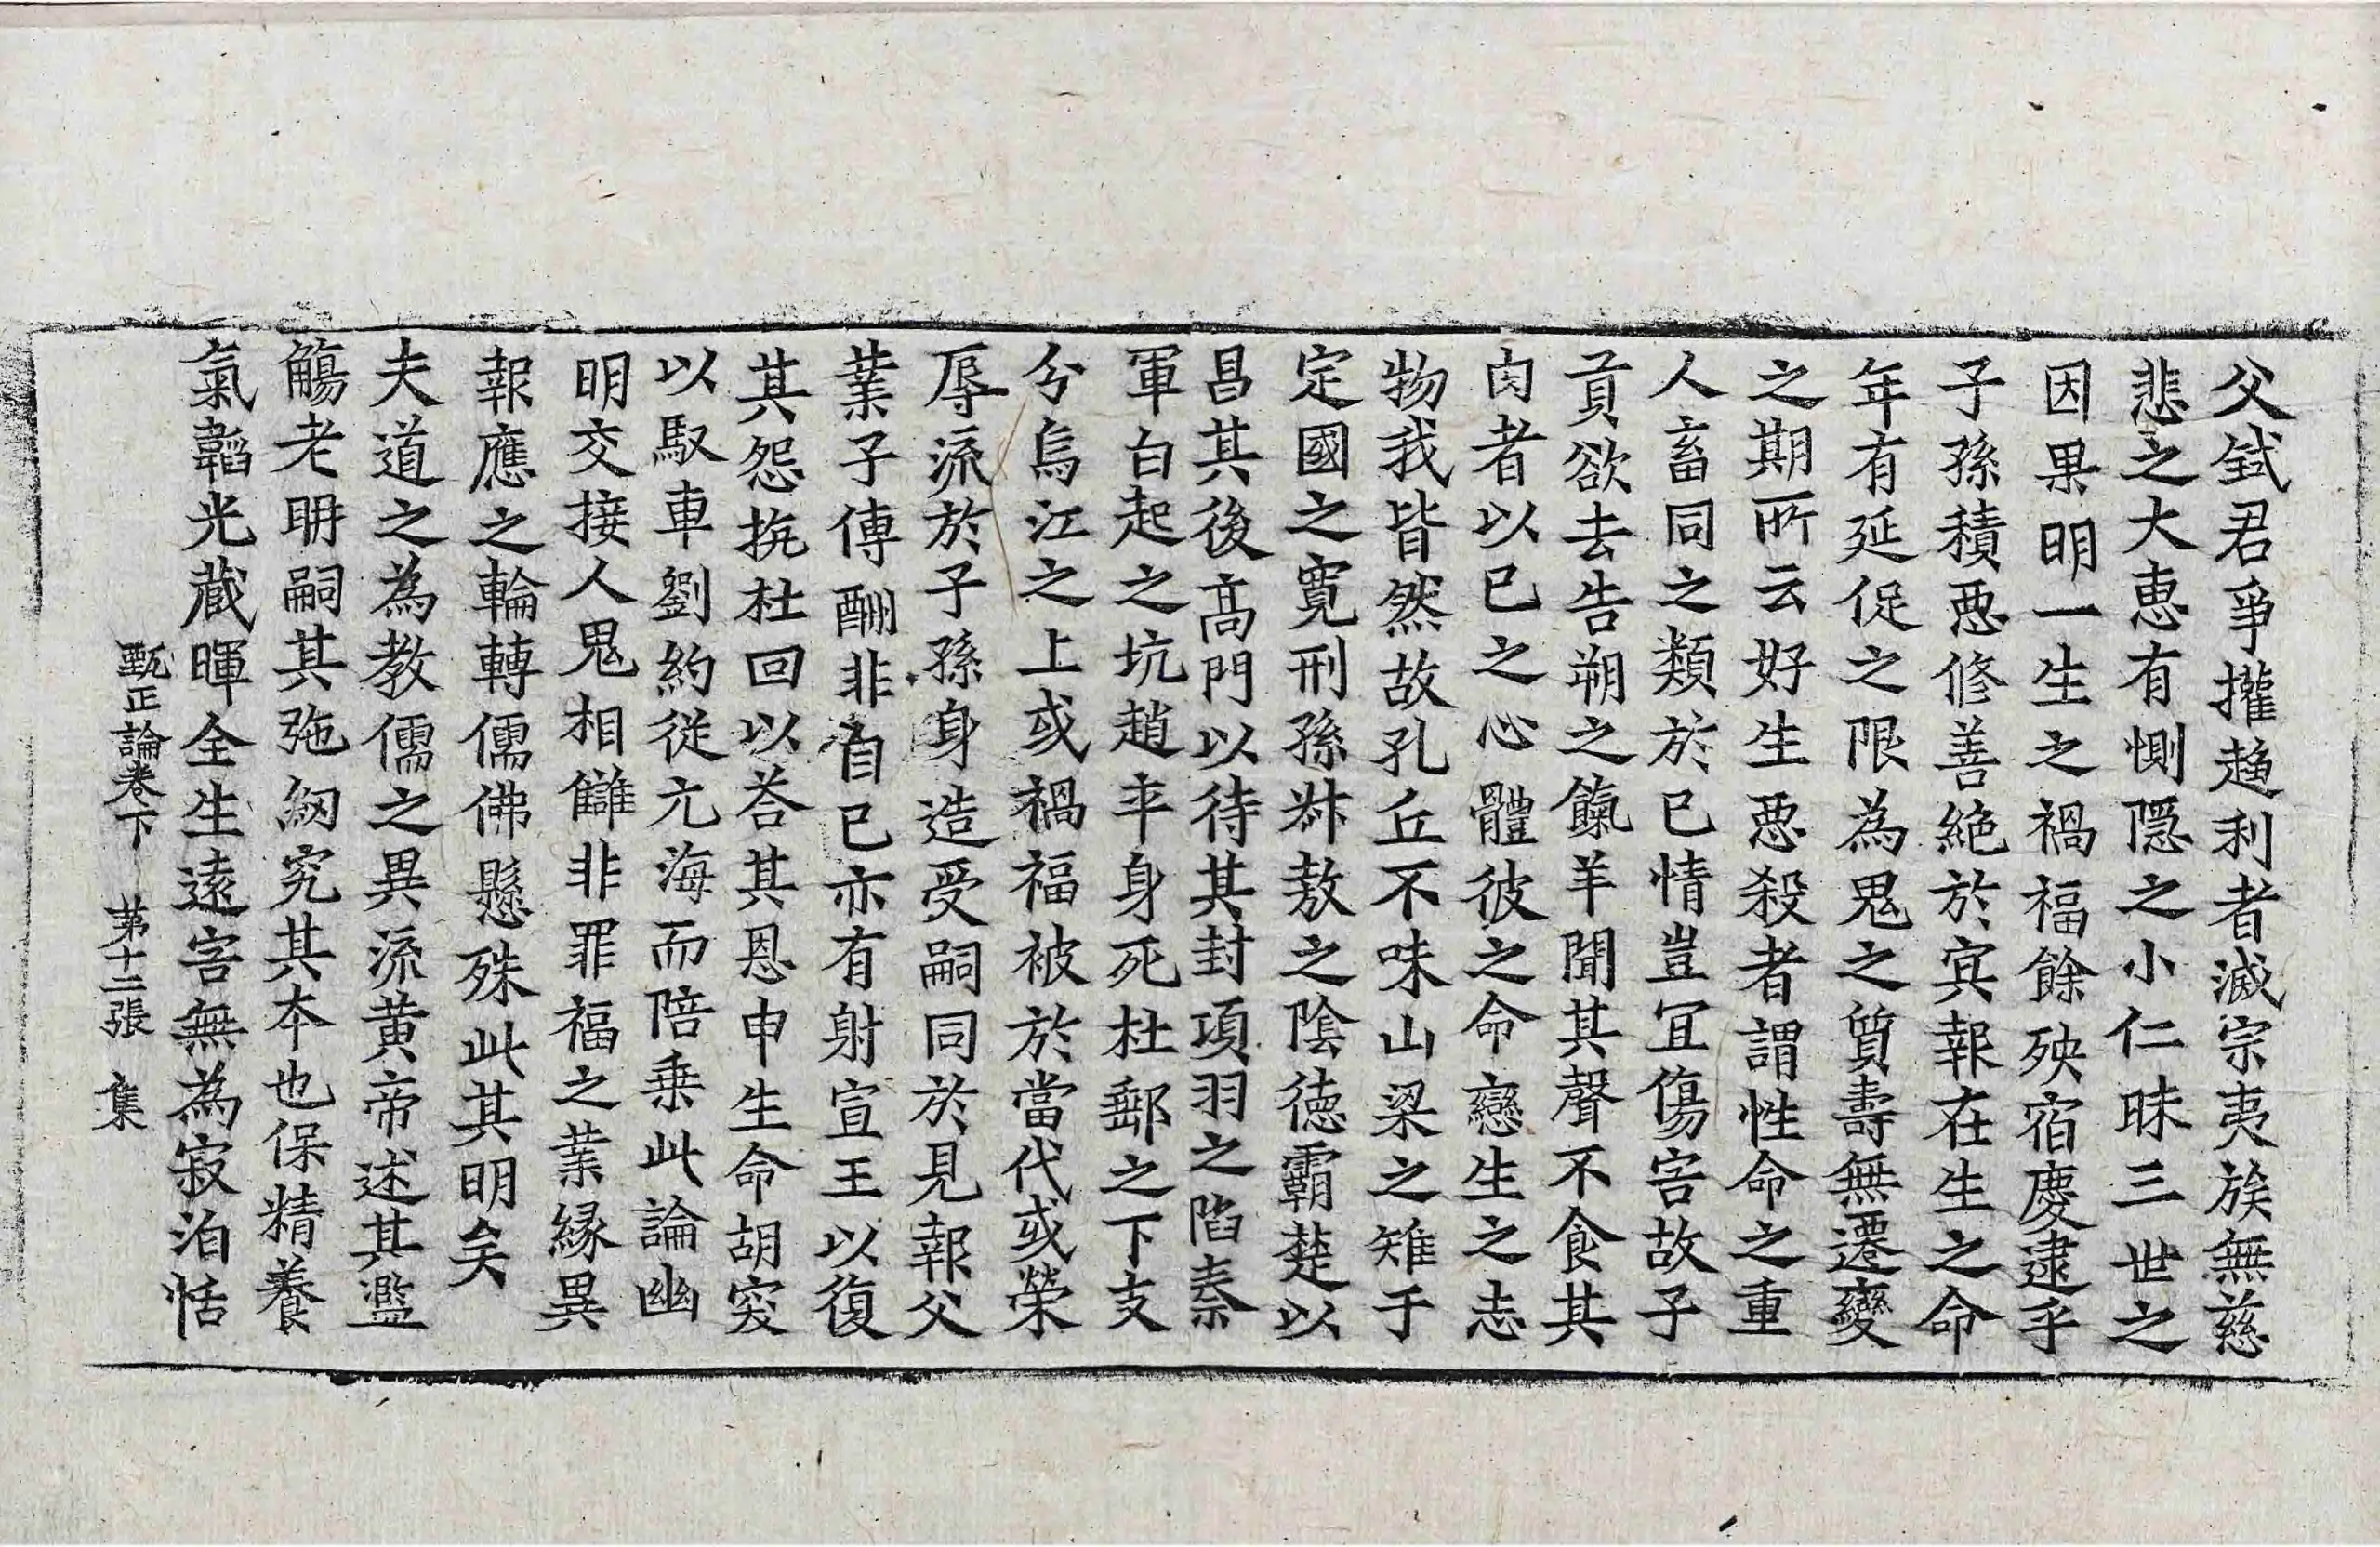 父弒君爭權趍利者滅宗夷族無慈
悲之大恵有惻隱之小仁昧三世之
因果明一生之禍福餘殃宿慶逮乎
子孫積惡修善絶於冥報在生之命
年有延促之限為鬼之質壽無遷變
之期所云好生惡殺者謂性命之重
人畜同之類於已情豈冝傷害故子
貢欲去告朔之餼羊聞其聲不食其
肉者以已之心體彼之命戀生之志
物我皆然故孔丘不味山梁之雉于
定國之寬刑孫叔敖之陰德霸楚以
昌其後高門以待其封項羽之陷秦
軍白起之坑趙卒身死杜郵之下支
分烏江之上或禍福被於當代或榮
辱流於子孫身造受嗣同於見報父
業子傳酬非自已亦有射宣王以復
其怨抗杜回以荅其恩申生命胡突
以馭車劉約從元海而陪乗此論幽
明交接人鬼相讎非罪福之業縁異
報應之輪轉儒佛懸殊此其明矣
夫道之為教儒之異流黄帝述其濫
觴老耼嗣其弛紉究其本也保精養
氣韜光蔵暉全生遠害無為寂泊恬
甄正論卷下 第十二張 集